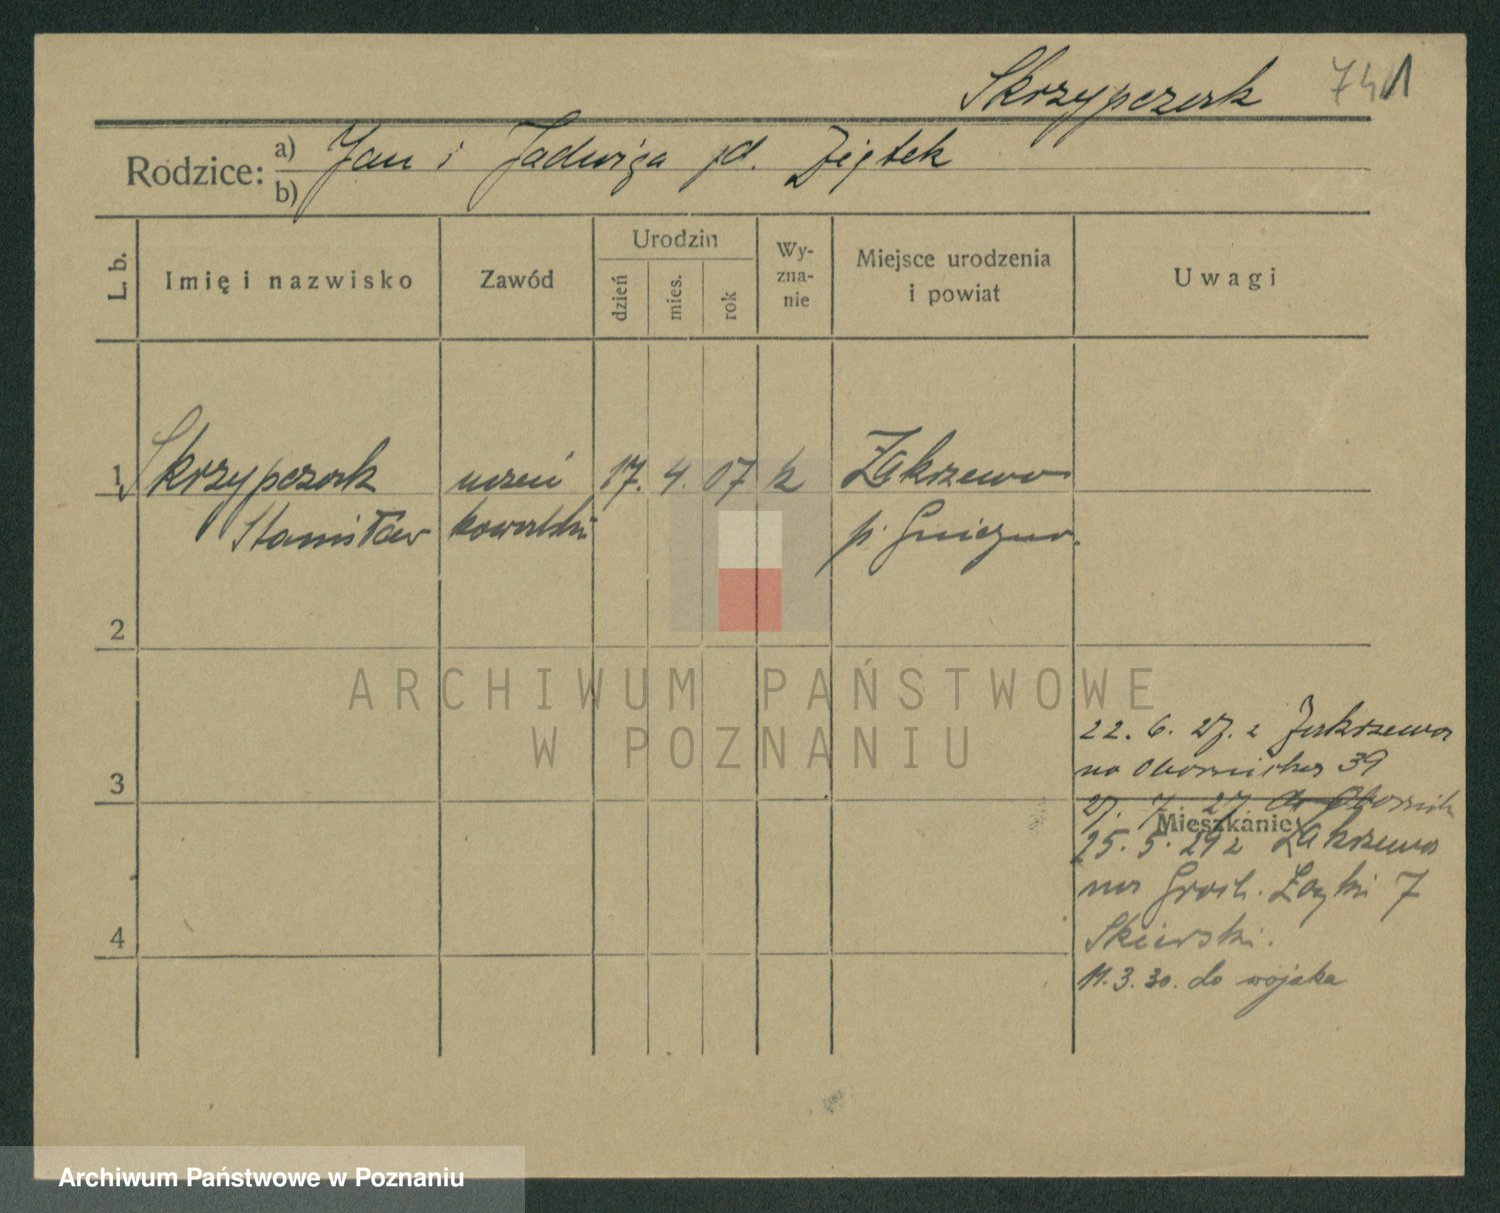 Skrzypczak 741
Rodzice: a) Jan i Jadwiga zd. Ziętek
b)
L. b.
Imię i nazwisko
Zawód
Urodzin
dzień
mies.
rok
Wy-
zna-
nie
Miejsce urodzenia
i powiat
Uwagi
1 Skrzypczak uczeń 17. 4. 07 k Zakrzewo
Stanisław kowalski p. Gniezno.
2
3
4
22. 6. 27. z Zakrzewa
na Obornicka 39
27. 7. 27. do Obornik
Mieszkanie
25. 5. 29 z Zakrzewa
na Groch. Łąki 7
11. 3. 30. do wojska
ARCHIWUM PAŃSTWOWE
W POZNANIU
Archiwum Państwowe w Poznaniu